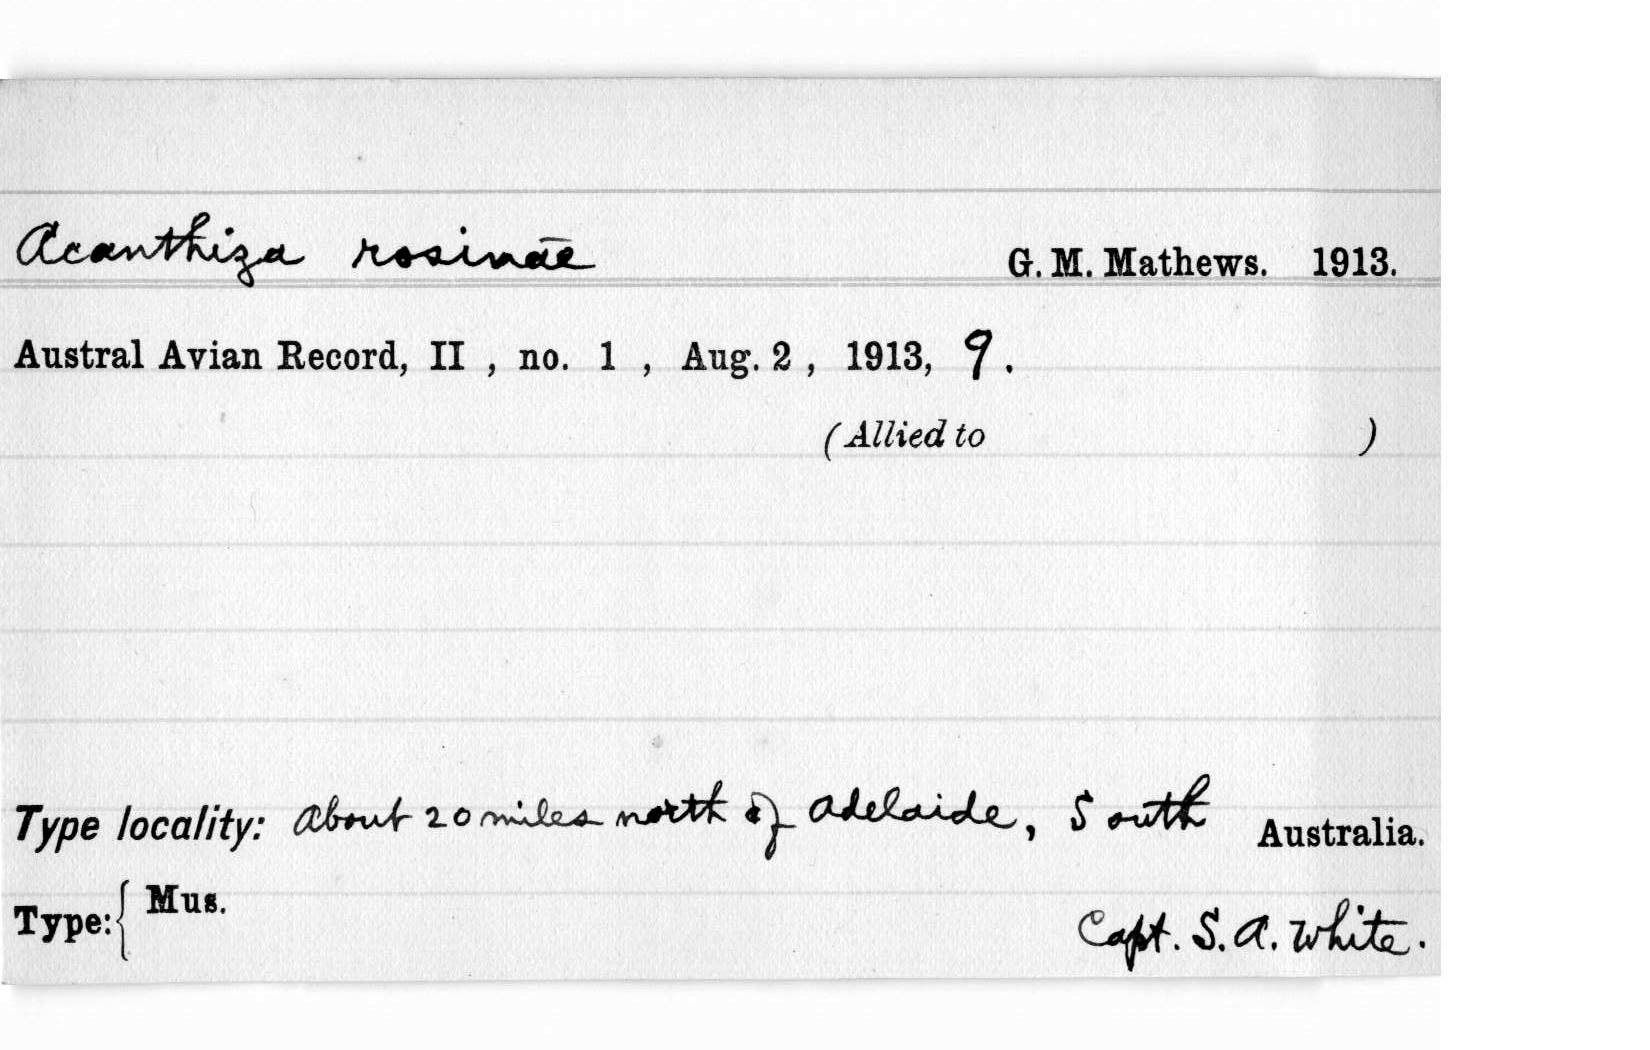 Acanthiza rosinae G. M. Mathews. 1913.
Austral Avian Record, II , no. 1 , Aug. 2 , 1913, 9.
(Allied to )
Type locality: About 20 miles north of Adelaide, South Australia.
Type: { Mus.
Capt. S. A. White.